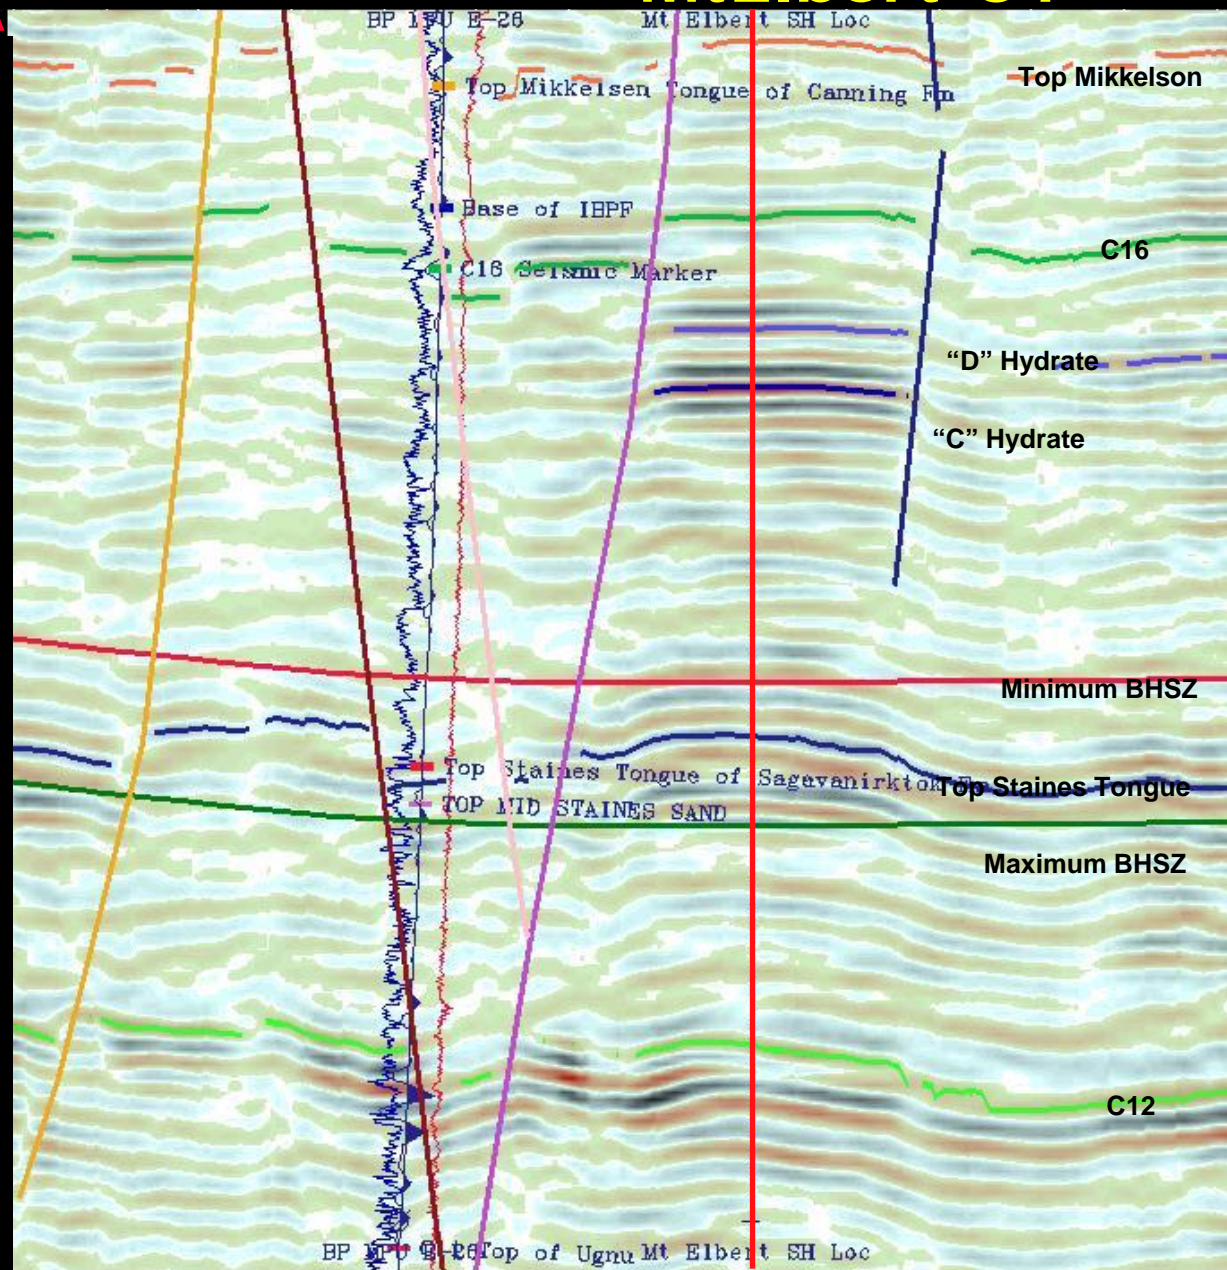 BP MPU E-26 Mt Elbert SH Loc
Top Mikkelson
Top Mikkelsen Tongue of Canning Fm
Base of IBPF
C16
C16 Seismic Marker
“D” Hydrate
“C” Hydrate
Minimum BHSZ
Top Staines Tongue of Sagavanirktok
Top Staines Tongue
TOP MID STAINES SAND
Maximum BHSZ
C12
BP MPU E-26 Top of Ugnu Mt Elbert SH Loc